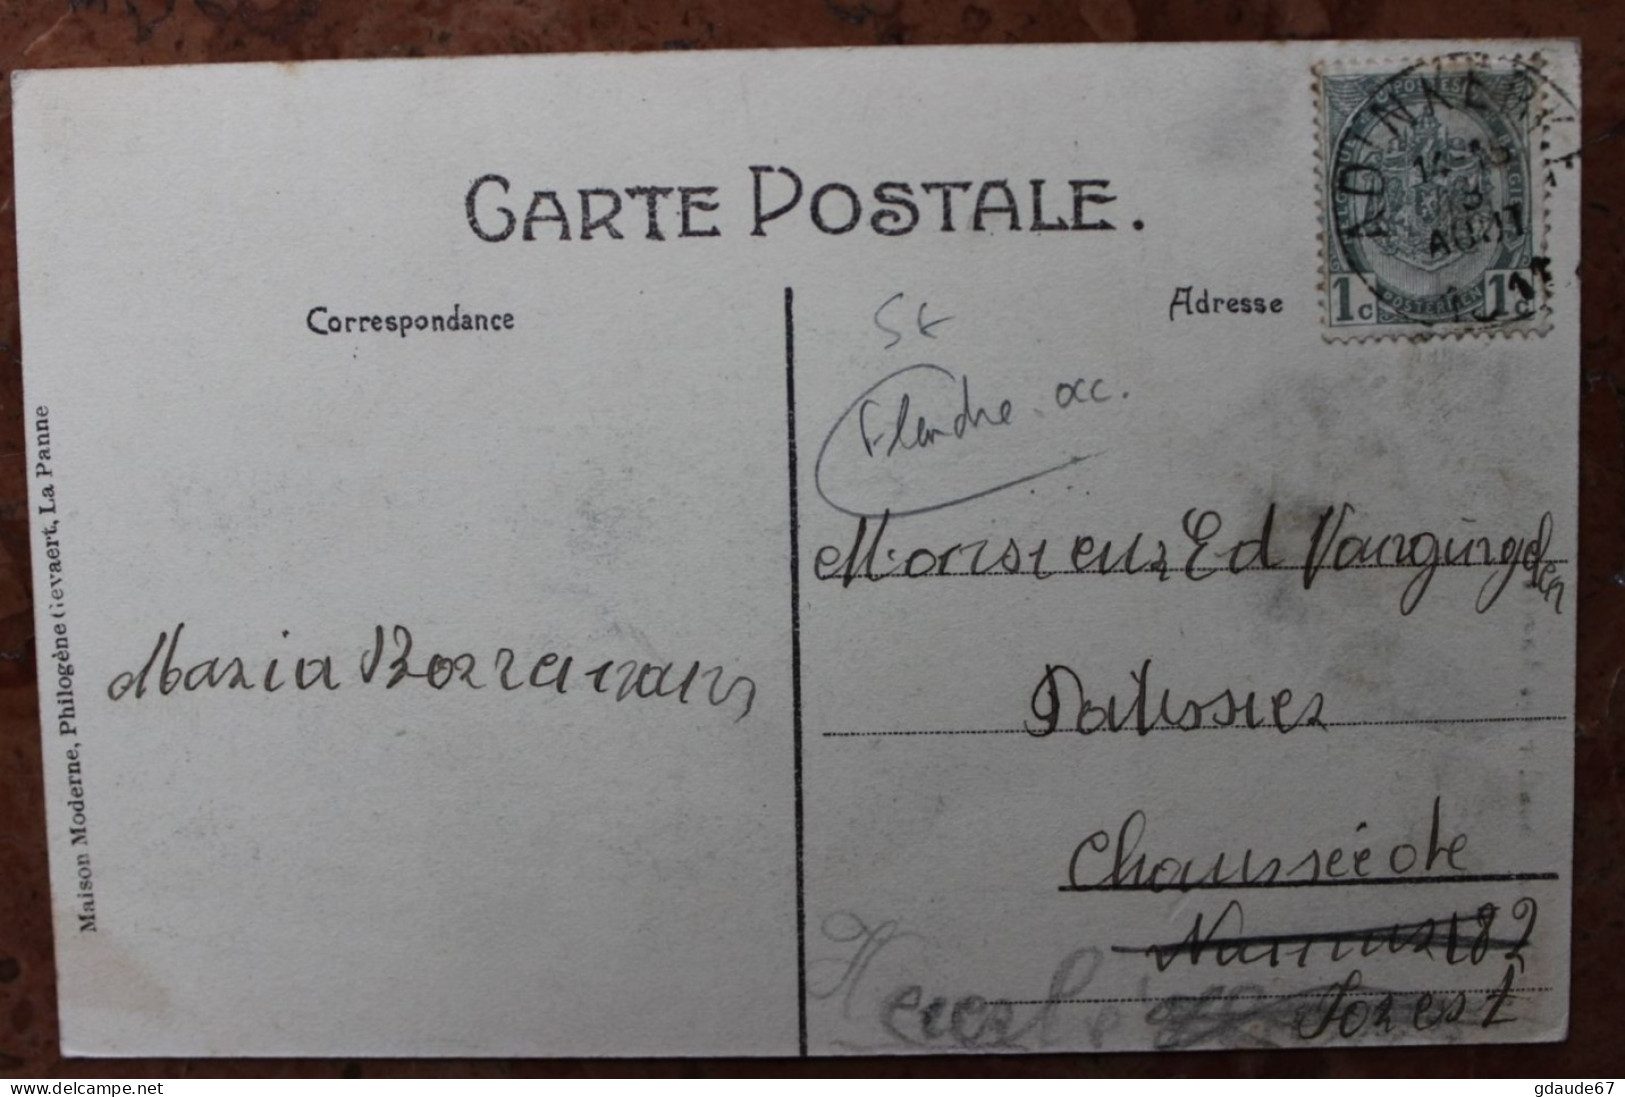 CARTE POSTALE.
Correspondance
Adresse
POSTES
1c 1c
POSTERIJEN
ADINKERK
AOUT
5€
Flandre occ.
Monsieur Ed Vangüngelden
Maria Borremans
Patissier
Chaussée de
Namur 182
Forest
Maison Moderne, Philogène Gevaert, La Panne
https://www.delcampe.net
gdaude67